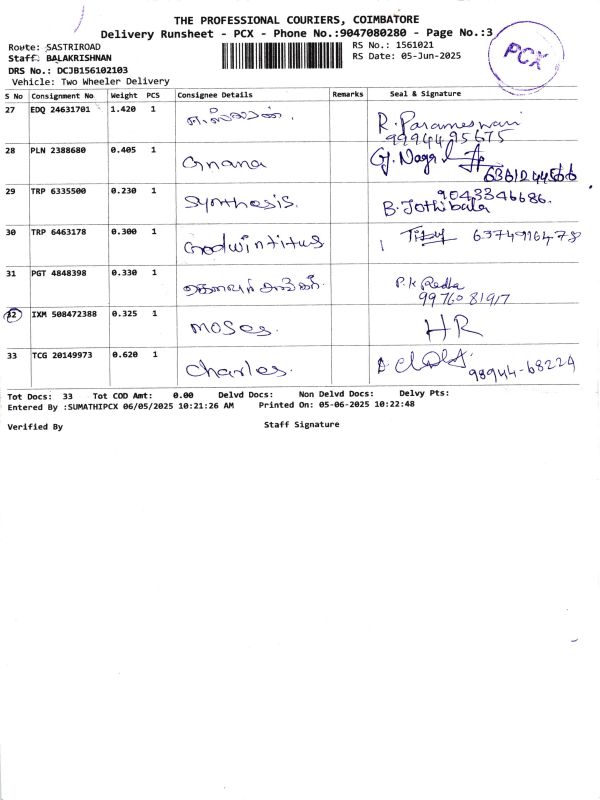 THE PROFESSIONAL COURIERS, COIMBATORE
Delivery Runsheet - PCX - Phone No.:9047080280 - Page No.:3
Route: SASTRIROAD
RS No.: 1561021
Staff: BALAKRISHNAN
RS Date: 05-Jun-2025
DRS No.: DCJB156102103
Vehicle: Two Wheeler Delivery
PCX
S No Consignment No Weight PCS Consignee Details Remarks Seal & Signature
27 EDQ 24631701 1.420 1 R. Parameswari
9994495675
28 PLN 2388680 0.405 1 Gnana G. Nagal
29 TRP 6335500 0.230 1 Synthesis. 9043346686.
B. Jothibala
30 TRP 6463178 0.300 1 Goodwintitus
31 PGT 4848398 0.330 1 P.K Redha
9976081917
32 IXM 508472388 0.325 1 moses. HR
33 TCG 20149973 0.620 1 Charles. 98944-68224
Tot Docs: 33 Tot COD Amt: 0.00 Delvd Docs: Non Delvd Docs: Delvy Pts:
Entered By :SUMATHIPCX 06/05/2025 10:21:26 AM Printed On: 05-06-2025 10:22:48
Verified By Staff Signature